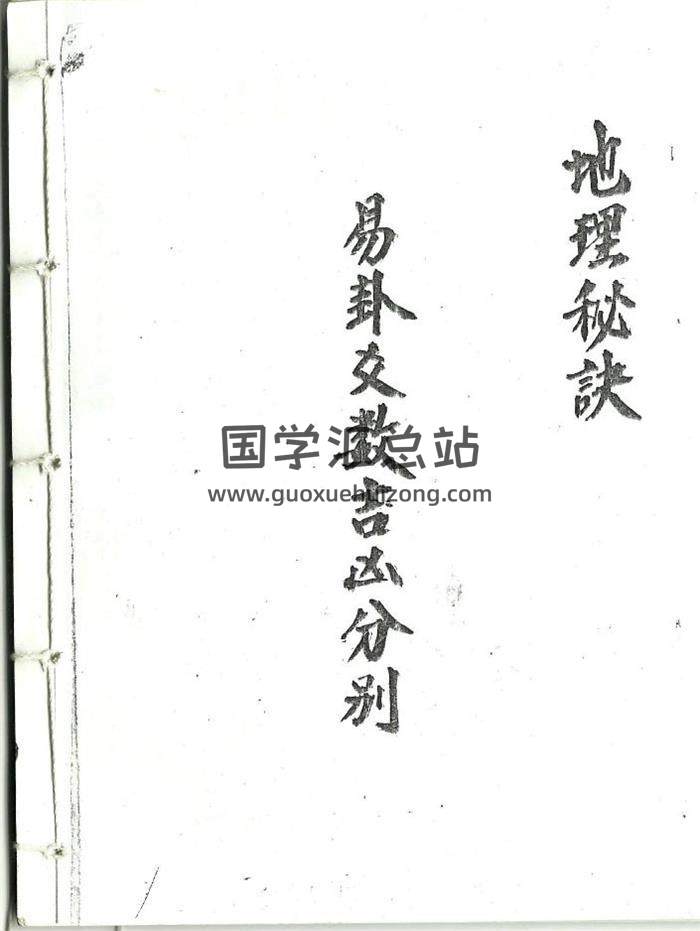 地理秘訣
易卦爻数吉凶分别
国学汇总站
www.guoxuehuizong.com